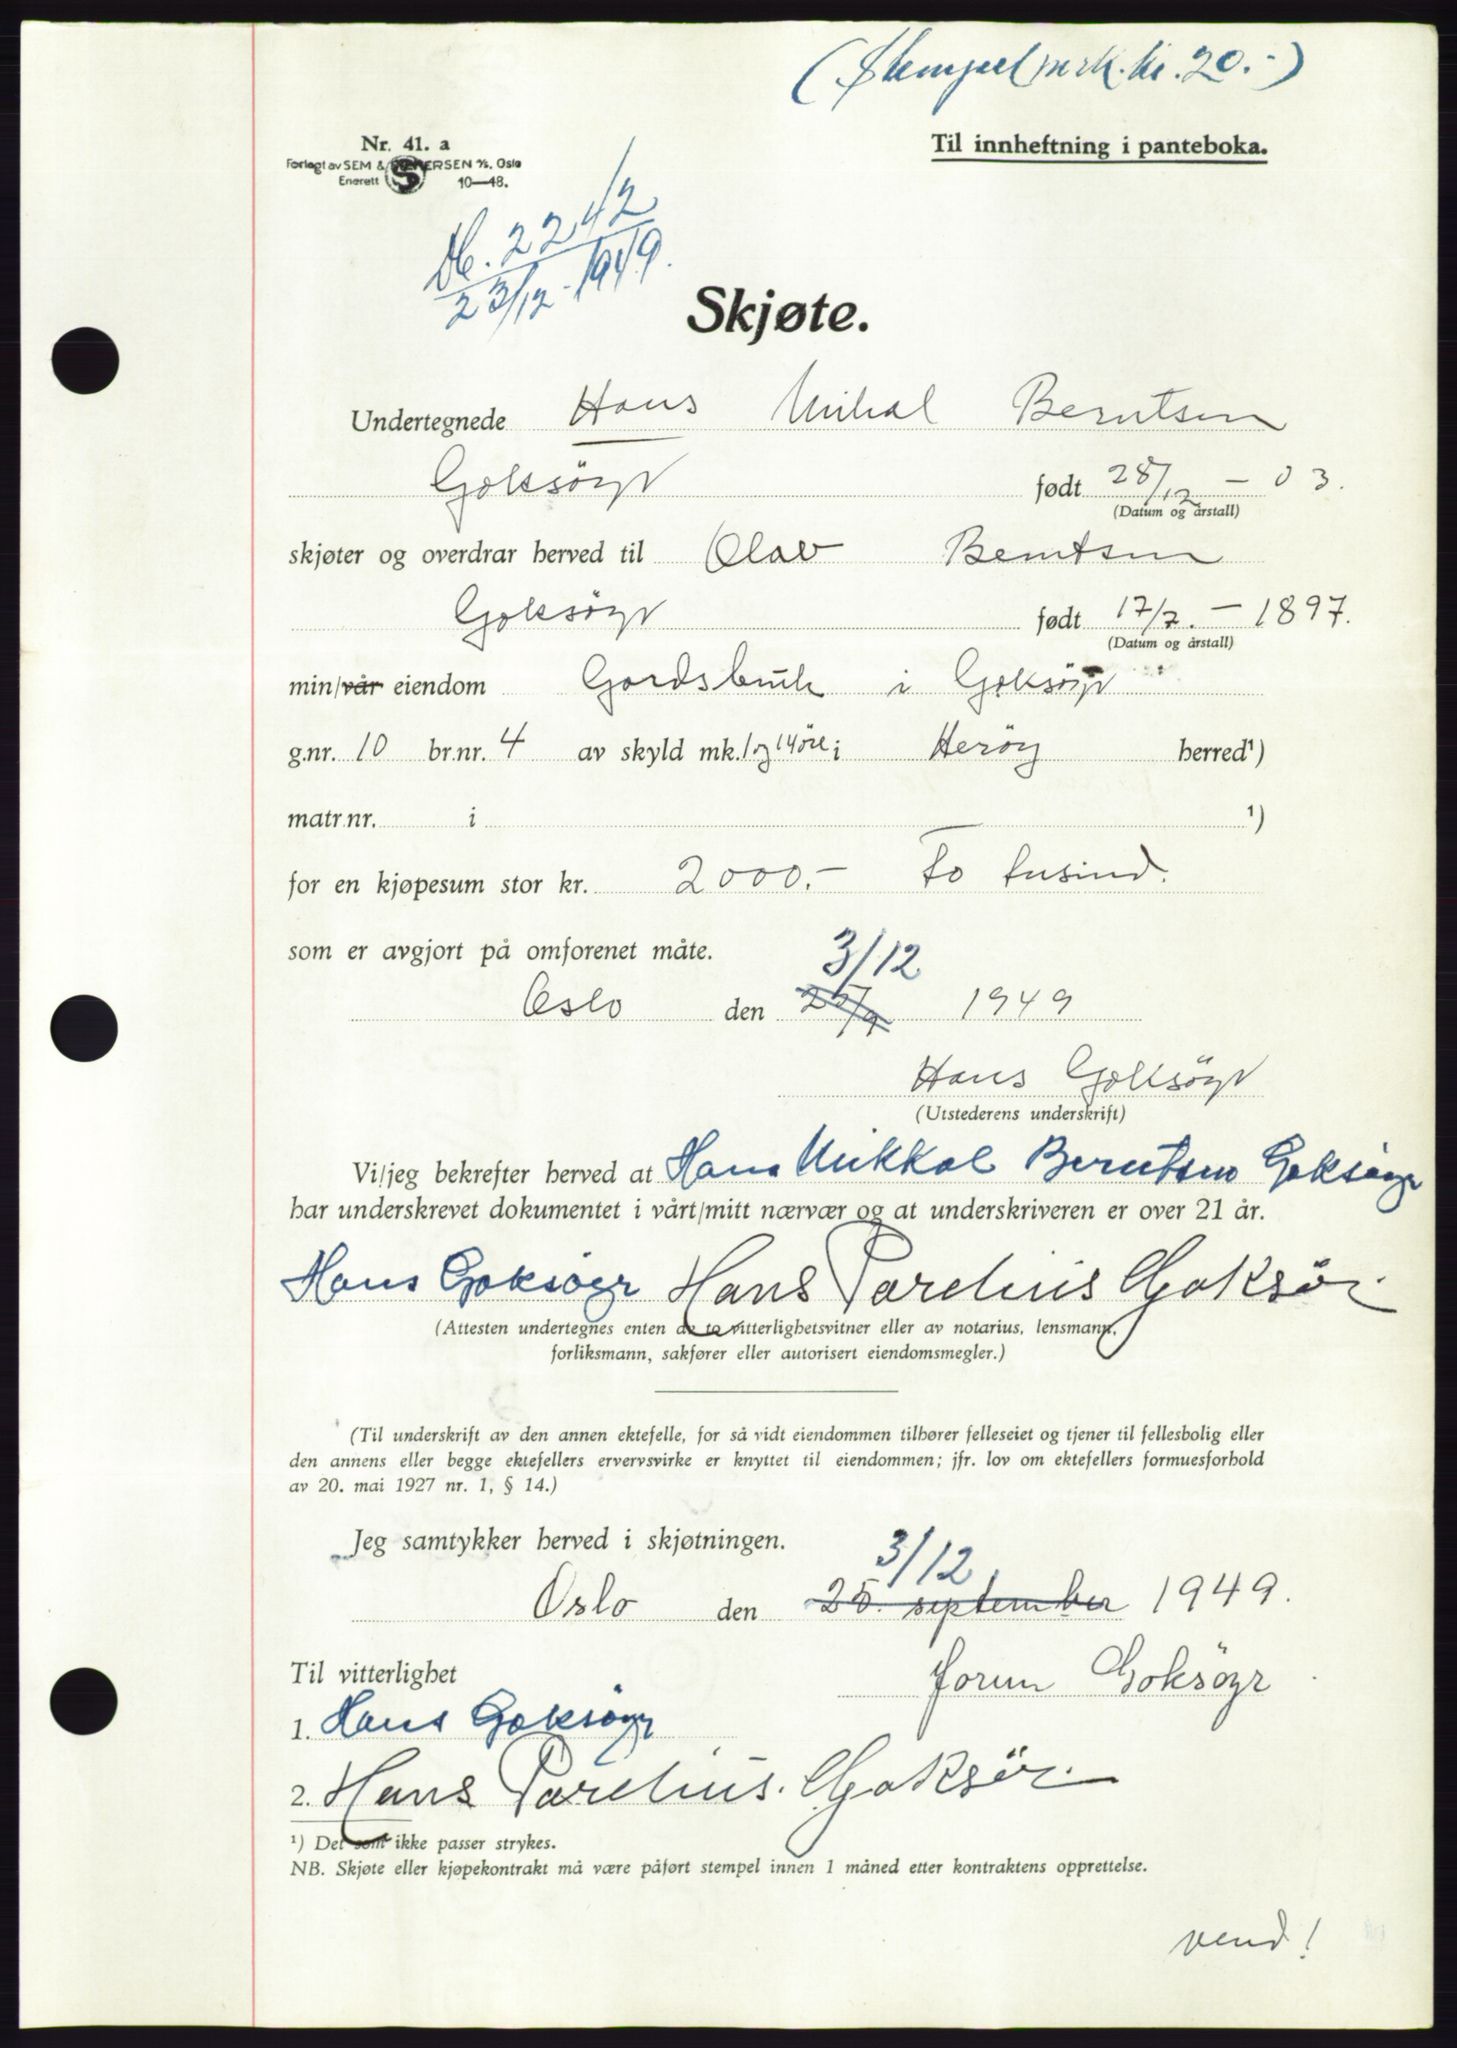 (Stempelmrk. kr. 20.-)
Nr. 41. a
Forlagt av SEM & STENERSEN A/S, Oslo
Enerett 10—48.
Til innheftning i panteboka.
Db. 2242
23/12-1949.
Skjøte.
Undertegnede Hans Mikal Berntsen
Goksöyr født 28/12 - 03.
(Datum og årstall)
skjøter og overdrar herved til Olav Berntsen
Goksöyr født 17/7. - 1897.
(Datum og årstall)
min/vår eiendom Gardsbruk i Goksöyr
g.nr. 10 br.nr. 4 av skyld mk. 1 og 14 öre i Heröy herred¹)
matr.nr. i ¹)
for en kjøpesum stor kr. 2000.- To tusind.
som er avgjort på omforenet måte.
3/12
Oslo den 25/9 1949
Hans Goksöyr
(Utstederens underskrift)
Vi/jeg bekrefter herved at Hans Mikkal Berntsen Goksöyr
har underskrevet dokumentet i vårt/mitt nærvær og at underskriveren er over 21 år.
Hans Goksöyr Hans Parelius Goksör.
(Attesten undertegnes enten av to vitterlighetsvitner eller av notarius, lensmann,
forliksmann, sakfører eller autorisert eiendomsmegler.)
(Til underskrift av den annen ektefelle, for så vidt eiendommen tilhører felleseiet og tjener til fellesbolig eller
den annens eller begge ektefellers ervervsvirke er knyttet til eiendommen; jfr. lov om ektefellers formuesforhold
av 20. mai 1927 nr. 1, § 14.)
Jeg samtykker herved i skjøtningen.
3/12
Oslo den 25. september 1949.
Til vitterlighet
Jorun Goksöyr
1. Hans Goksöyr
2. Hans Parelius. Goksör.
¹) Det som ikke passer strykes.
NB. Skjøte eller kjøpekontrakt må være påført stempel innen 1 måned etter kontraktens opprettelse.
vend!